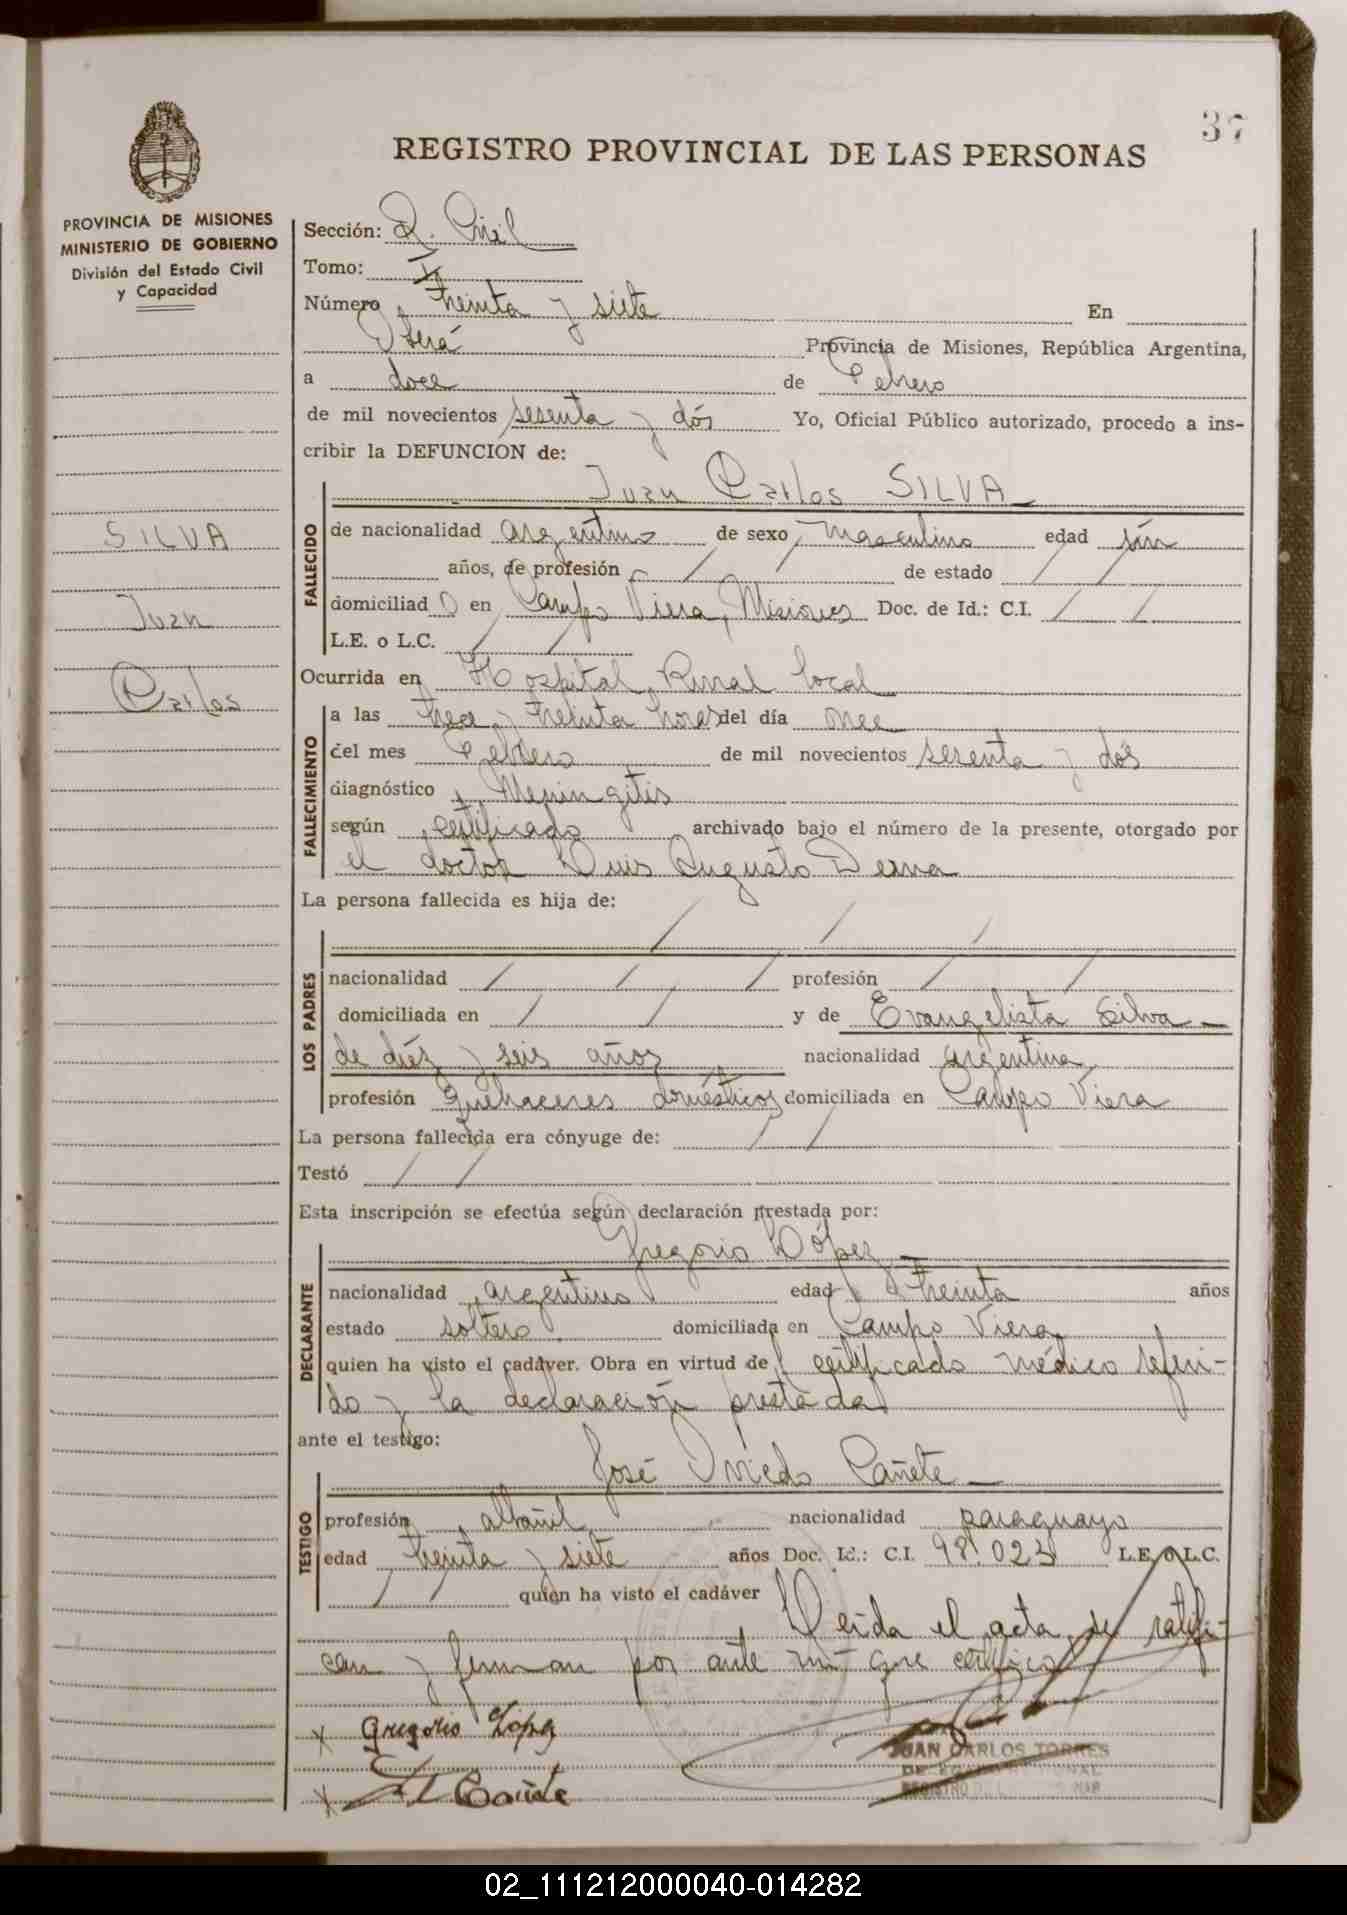 37
REGISTRO PROVINCIAL DE LAS PERSONAS
PROVINCIA DE MISIONES
MINISTERIO DE GOBIERNO
División del Estado Civil
y Capacidad
SILVA
Juan
Carlos
Sección: R. Civil
Tomo: I
Número Treinta y siete En
Oberá Provincia de Misiones, República Argentina,
a doce de Febrero
de mil novecientos sesenta y dós Yo, Oficial Público autorizado, procedo a ins-
cribir la DEFUNCION de:
Juan Carlos SILVA
FALLECIDO
de nacionalidad argentino de sexo masculino edad sin
años, de profesión / / de estado / /
domiciliado en Campo Viera, Misiones Doc. de Id.: C.I. / /
L.E. o L.C. / /
Ocurrida en Hospital Rural local
FALLECIMIENTO
a las trece y treinta horas del día once
del mes Febrero de mil novecientos sesenta y dós
diagnóstico Meningitis
según certificado archivado bajo el número de la presente, otorgado por
el doctor Luis Augusto Derna
La persona fallecida es hija de:
LOS PADRES
/ / /
nacionalidad / / / profesión / /
domiciliada en / / y de Evangelista Silva
de diéz y seis años nacionalidad argentina
profesión Quehaceres domésticos domiciliada en Campo Viera
La persona fallecida era cónyuge de: / /
Testó / /
Esta inscripción se efectúa según declaración prestada por:
Gregorio López
DECLARANTE
nacionalidad argentino edad treinta años
estado soltero domiciliada en Campo Viera
quien ha visto el cadáver. Obra en virtud del certificado médico referi-
do y la declaración prestada
ante el testigo:
José Oviedo Cañete
TESTIGO
profesión albañil nacionalidad paraguayo
edad treinta y siete años Doc. Id.: C.I. 98.023 L.E. o L.C.
/ / quien ha visto el cadáver Leida el acta, se ratifi-
can y firman por ante mi que certifico
x Gregorio López
x Cañete
JUAN CARLOS TORRES
02_111212000040-014282